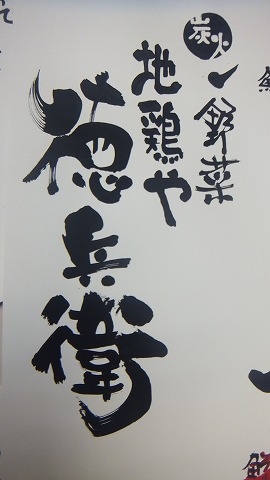 炭火
野菜
地鶏や
徳兵衛